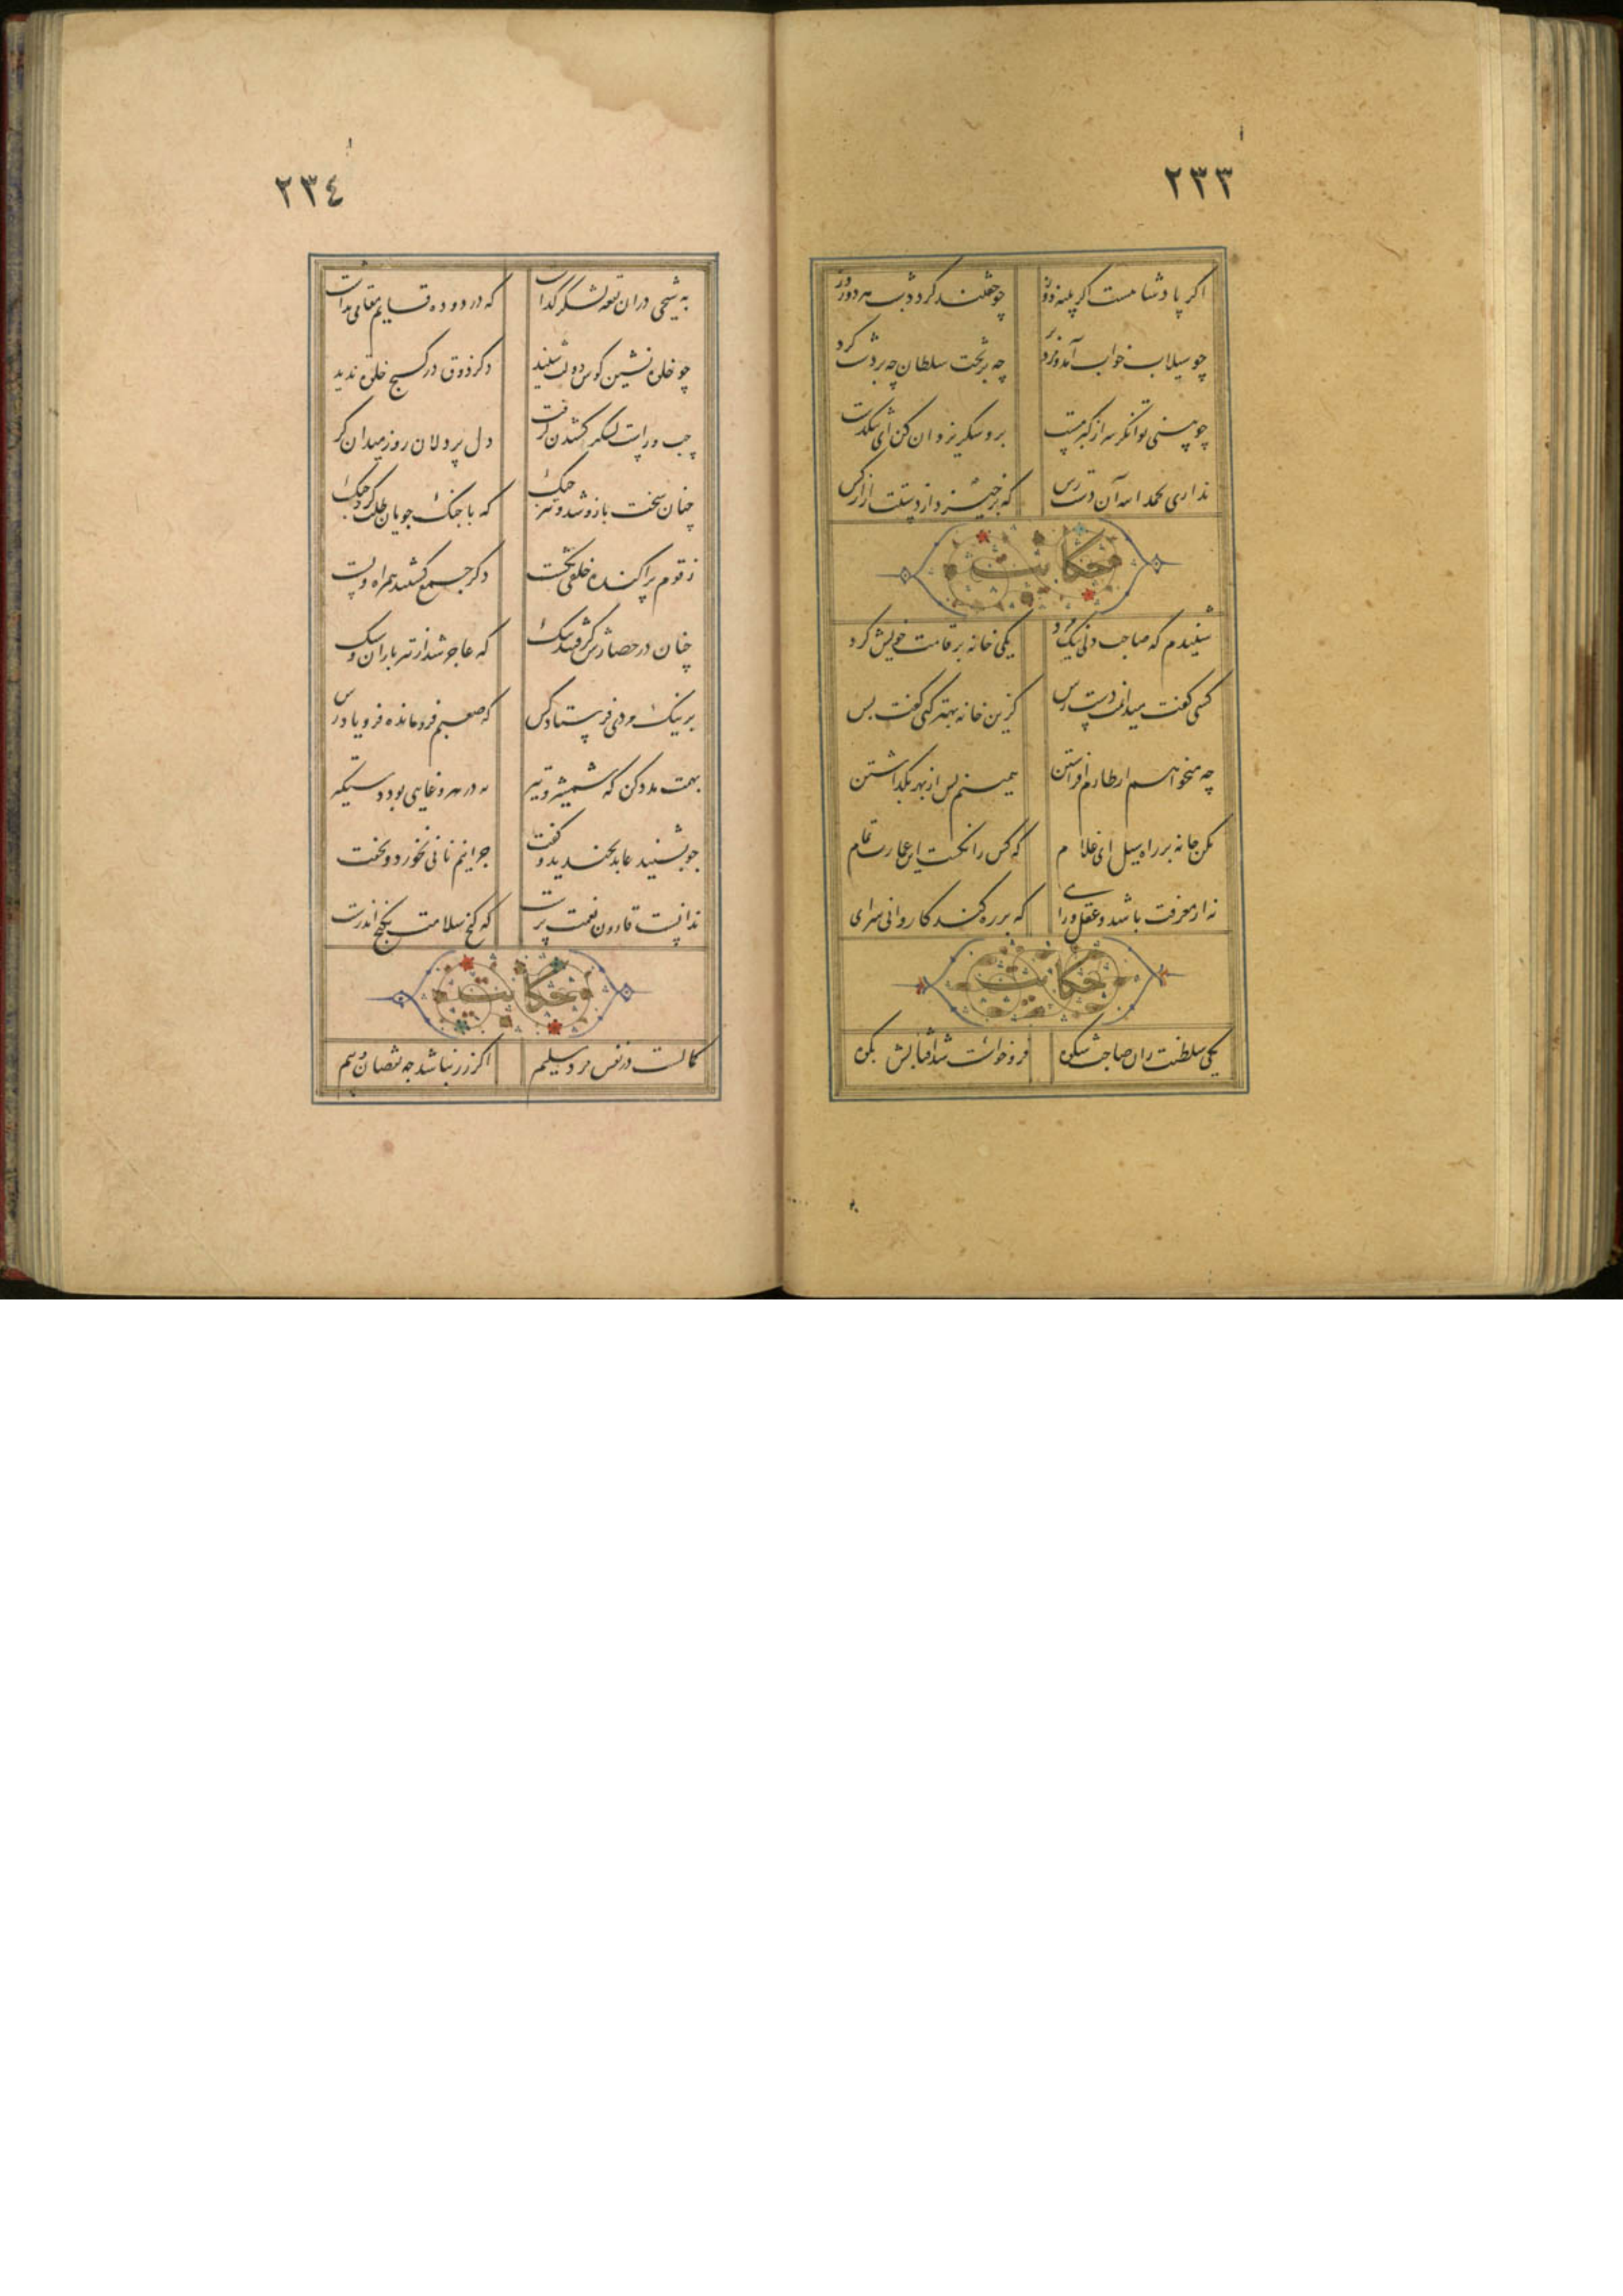 ٢٣٣
اگر پادشاهست اگر پینه دوز چو خفتند گردد شب هر دو روز
چو سیلاب خواب آمد و مرد برد چه بر تخت سلطان چه بر دشت کرد
چو بینی توانگر سر از کبر مست برو شکر یزدان کن ای تنگدست
نداری بحمد الله آن دسترس که برخیزد از دستت آزار کس
حکایت
شنیدم که صاحب دلی نیک مرد یکی خانه بر قامت خویش کرد
کسی گفت میدانمت دسترس کزین خانه بهتر کنی گفت بس
چه میخواهم از طارم افراشتن همینم بس از بهر بگذاشتن
مکن خانه بر راه سیل ای غلام که کس را نگشت این عمارت تمام
نه از معرفت باشد و عقل و رای که بر ره کند کاروانی سرای
حکایت
یکی سلطنت ران صاحب شکوه فرو خواست شد آفتابش بکوه
٢٣٤
به شیخی در آن بقعه لشکر گذاشت که در دوده قایم مقامی نداشت
چو خلوه نشین کوس دولت شنید دگر ذوق در کنج خلوة ندید
چپ و راست لشکر کشیدن گرفت دل پر دلان زو رمیدن گرفت
چنان سخت بازو شد و تیز چنگ که با جنگ جویان طلب کرد جنگ
ز قوم پراکنده خلقی بکشت دگر جمع گشتند همراه و پشت
چنان در حصارش گرفتند تنگ که عاجز شد از تیر باران و سنگ
بر نیک مردی فرستاد کس که صعبم فرو مانده فریاد رس
بهمت مدد کن که شمشیر و تیر نه در هر وغایی بود دستگیر
چو بشنید عابد بخندید و گفت چرا نیم نانی نخورد و نخفت
ندانست قارون نعمت پرست که گنج سلامت بکنج اندرست
حکایت
کمالست در نفس مرد سلیم اگر زر نباشد چه نقصان و سیم